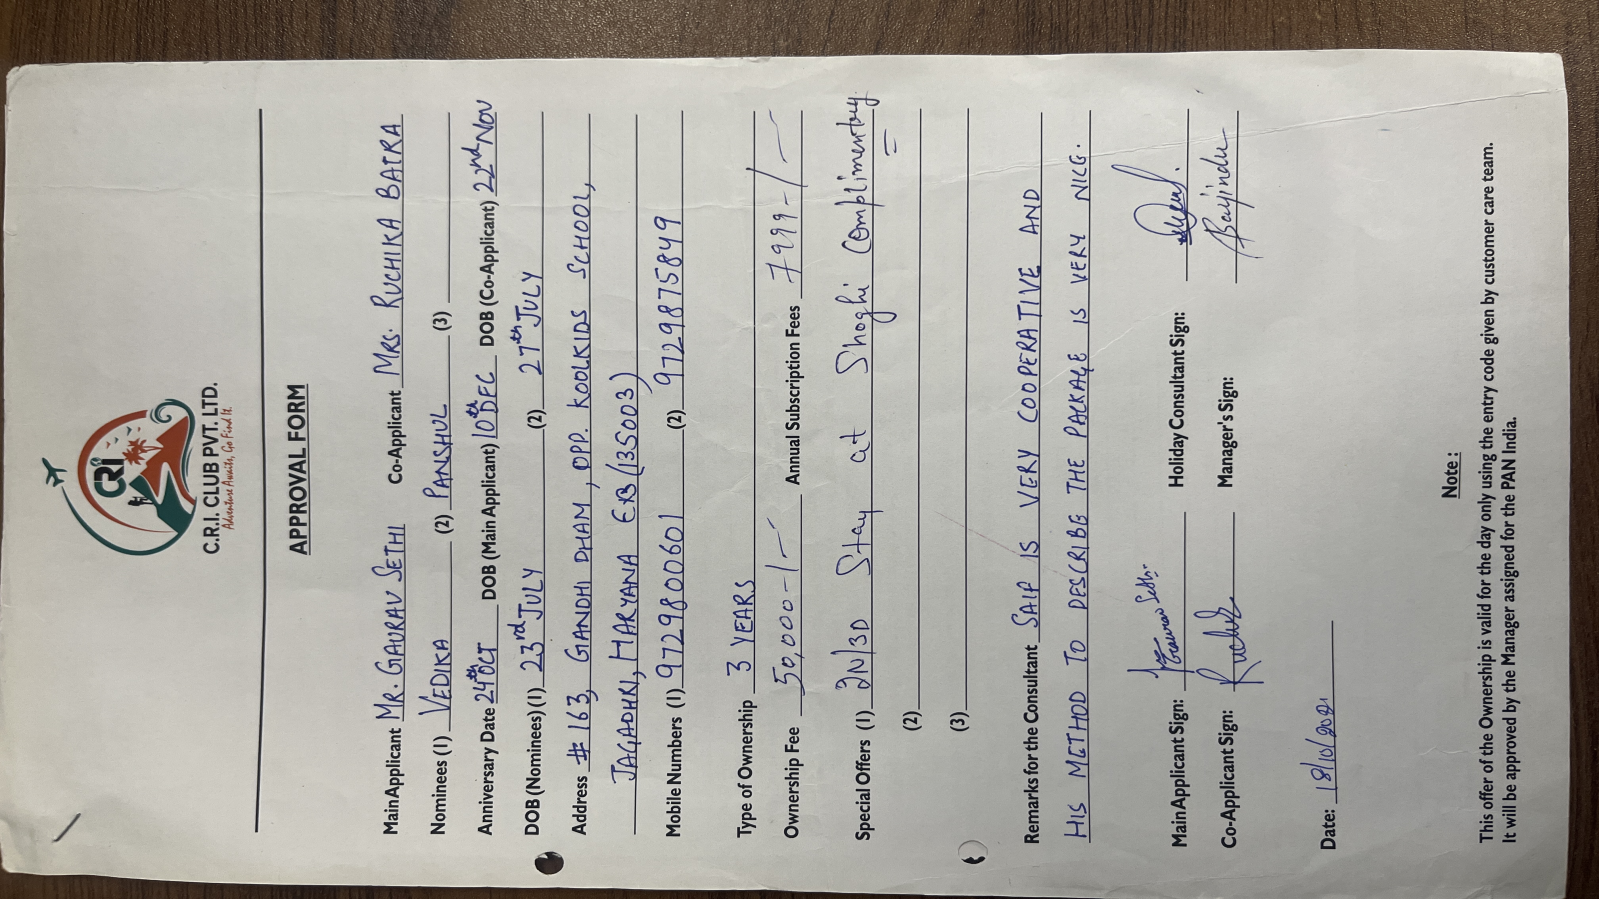 CRI
C.R.I. CLUB PVT. LTD.
Adventure Awaits, Go Find It.
APPROVAL FORM
Main Applicant MR. GAURAV SETHI Co-Applicant MRS. RUCHIKA BATRA
Nominees (1) VEDIKA (2) PANSHUL (3)
Anniversary Date 24th OCT DOB (Main Applicant) 10th DEC DOB (Co-Applicant) 22nd NOV
DOB (Nominees) (1) 23rd JULY (2) 27th JULY
Address # 163, GANDHI DHAM, OPP. KOOLKIDS SCHOOL,
JAGADHRI, HARYANA (135003)
Mobile Numbers (1) 9729800601 (2) 9729875849
Type of Ownership 3 YEARS
Ownership Fee 50,000-/- Annual Subscription Fees 7999-/-
Special Offers (1) 2N/3D Stay at Shoghi Complimentary
(2)
(3)
Remarks for the Consultant SAIF IS VERY COOPERATIVE AND
HIS METHOD TO DESCRIBE THE PACKAGE IS VERY NICE.
Main Applicant Sign: Gaurav Sethi Holiday Consultant Sign:
Co-Applicant Sign: Manager's Sign:
Date: 18/10/2021
Note :
This offer of the Ownership is valid for the day only using the entry code given by customer care team.
It will be approved by the Manager assigned for the PAN India.